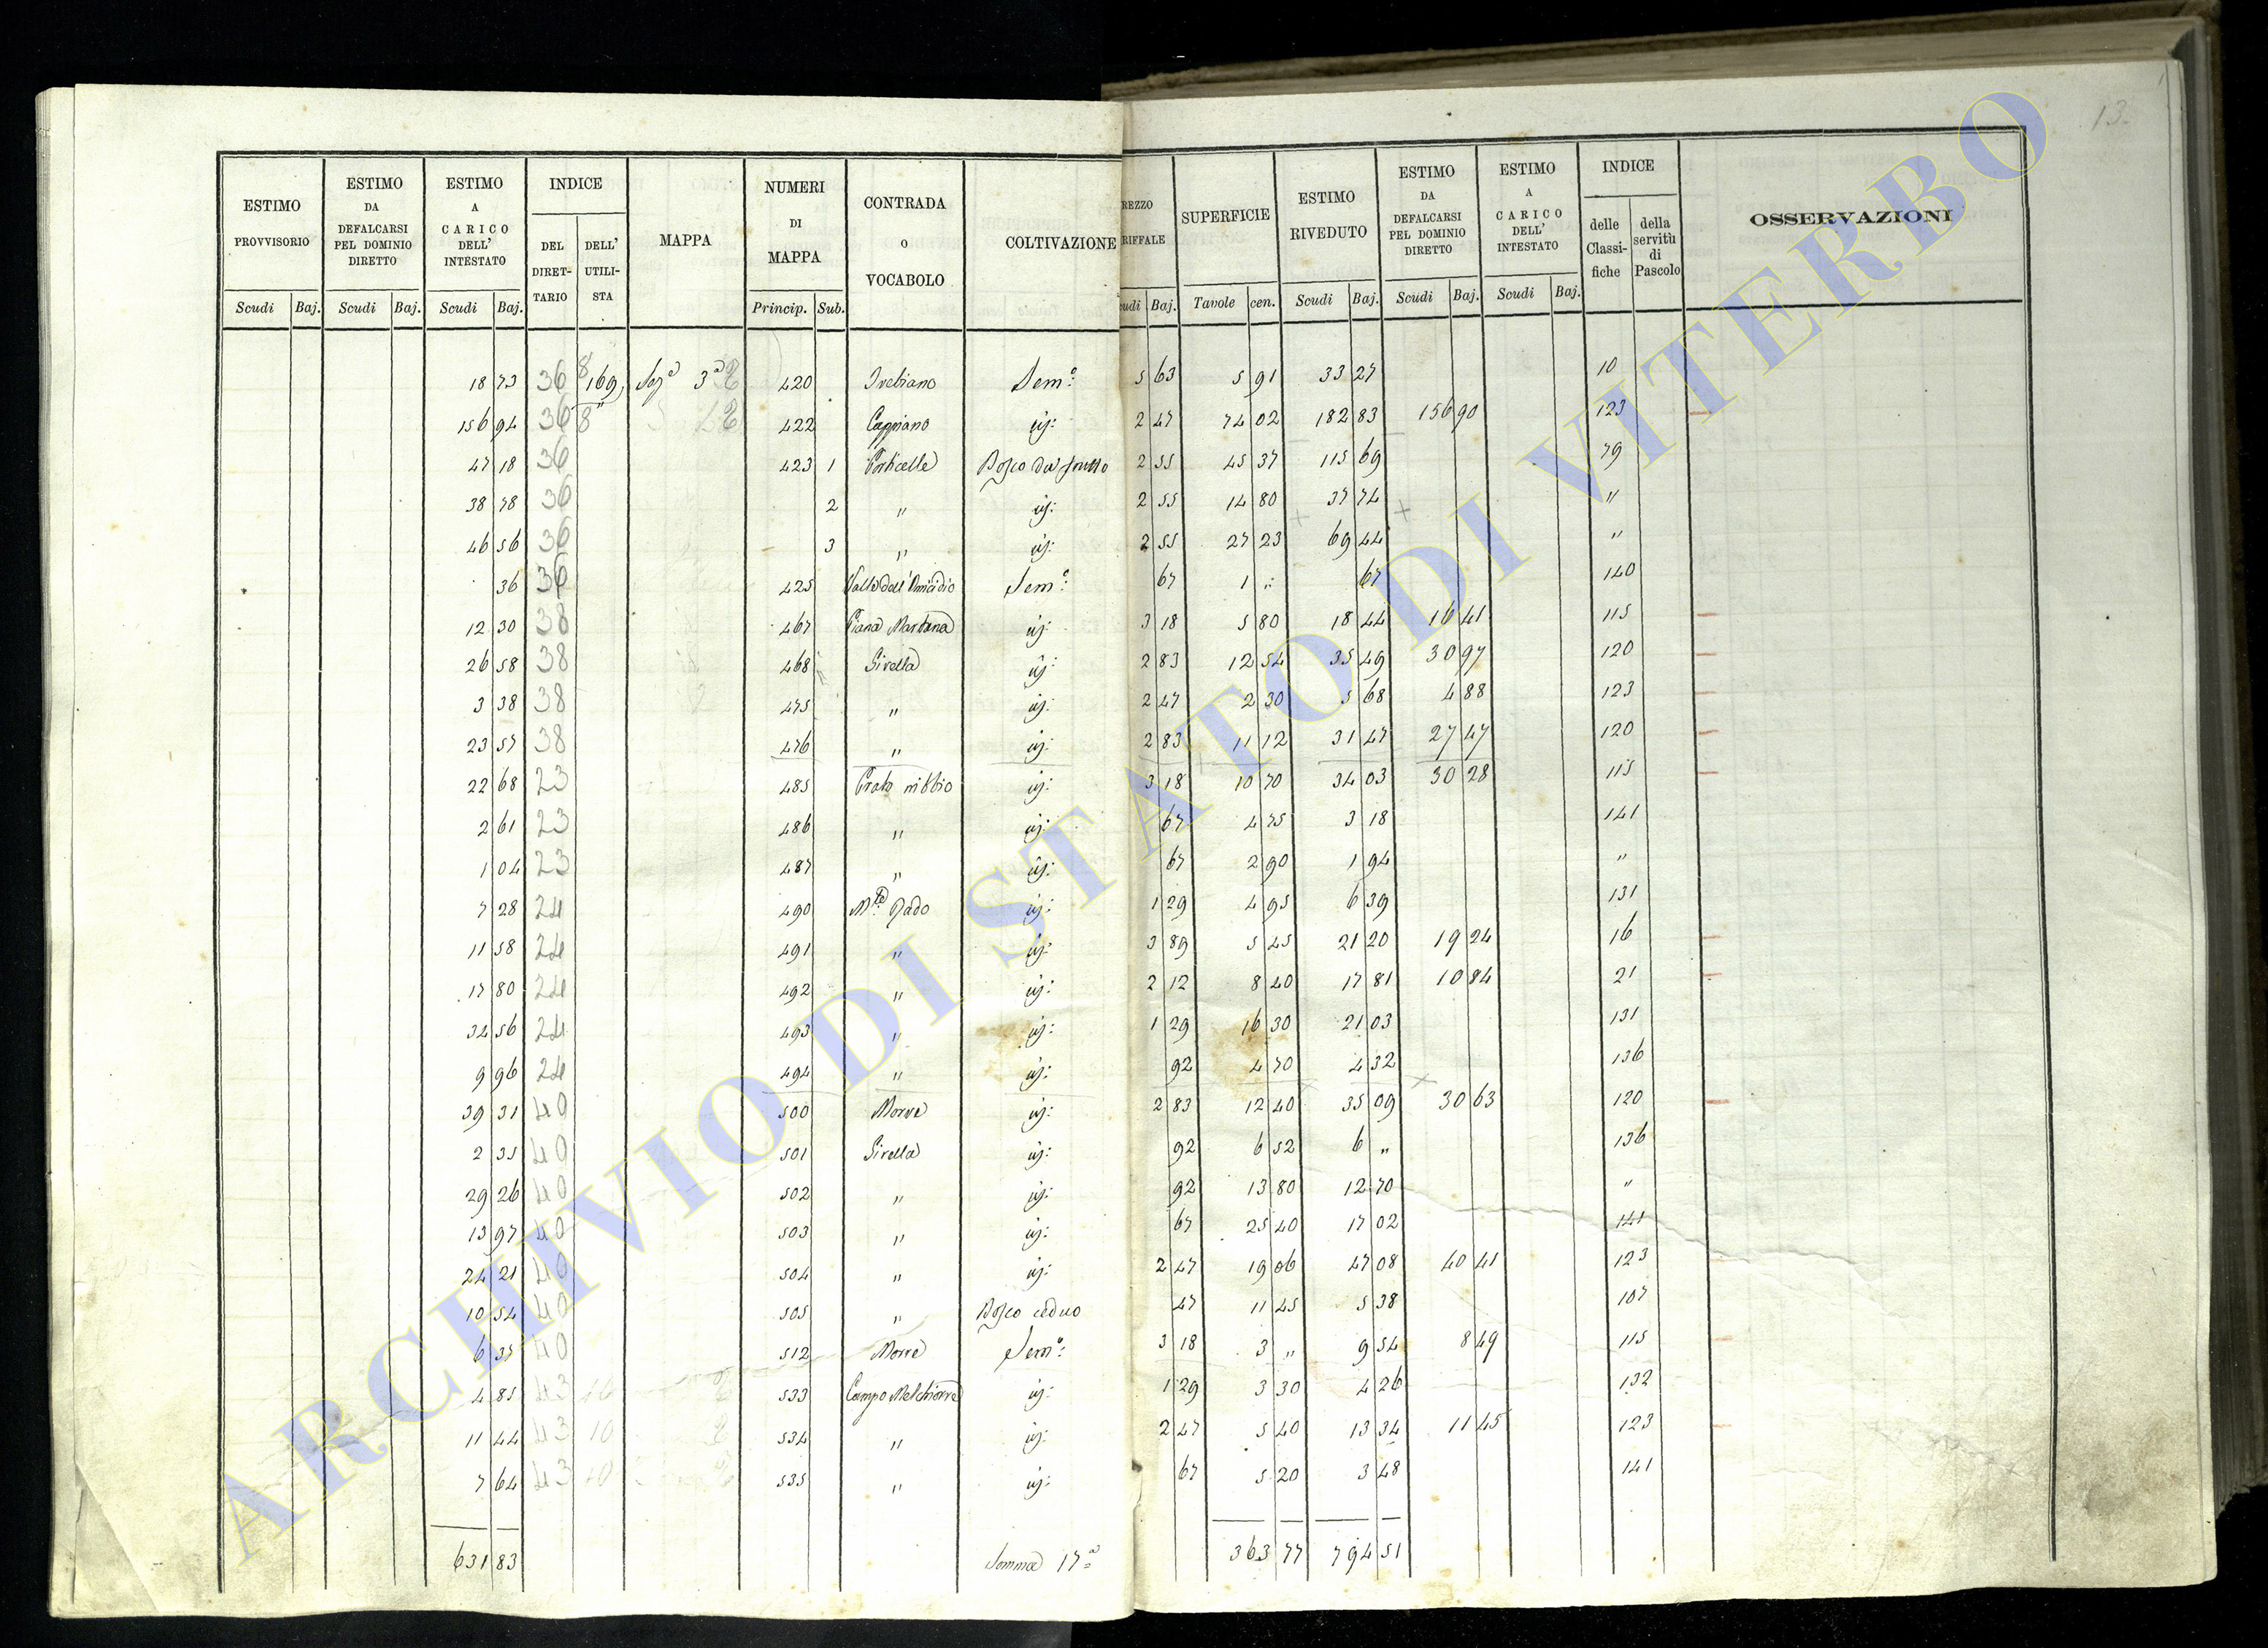 13.
ESTIMO PROVVISORIO | ESTIMO DA DEFALCARSI PEL DOMINIO DIRETTO | ESTIMO A CARICO DELL' INTESTATO | INDICE | MAPPA | NUMERI DI MAPPA | CONTRADA O VOCABOLO | COLTIVAZIONE | REZZO RIFFALE | SUPERFICIE | ESTIMO RIVEDUTO | ESTIMO DA DEFALCARSI PEL DOMINIO DIRETTO | ESTIMO A CARICO DELL' INTESTATO | INDICE | OSSERVAZIONI
DEL DIRET-TARIO | DELL' UTILI-STA | delle Classi-fiche | della servitù di Pascolo
Scudi | Baj. | Scudi | Baj. | Scudi | Baj. | Princip. | Sub. | udi | Baj. | Tavole | cen. | Scudi | Baj. | Scudi | Baj. | Scudi | Baj.
18 73 | 36 | 8 169 | Sez.ª 3ª | 420 | | Sem.º: | 5 63 | 5 91 | 33 27 | | 10
156 94 | 36 | 8 " | | 422 | Cappiano | id: | 2 47 | 74 02 | 182 83 | 156 90 | 123
47 18 | 36 | | | 423 1 | Porticelle | Bosco da frutto | 2 55 | 45 37 | 115 69 | | 79
38 78 | 36 | | | 2 | " | id: | 2 55 | 14 80 | 37 74 | | "
46 56 | 36 | | | 3 | " | id: | 2 55 | 27 23 | 69 44 | | "
36 | 36 | | | 425 | Valle dell' Omicidio | Sem.º: | 67 | 1 " | 67 | | 140
12 30 | 38 | | | 467 | Piana Martana | id: | 3 18 | 5 80 | 18 44 | 16 41 | 115
26 58 | 38 | | | 468 | Sirella | id: | 2 83 | 12 54 | 35 49 | 30 97 | 120
3 38 | 38 | | | 475 | " | id: | 2 47 | 2 30 | 5 68 | 4 88 | 123
23 57 | 38 | | | 476 | " | id: | 2 83 | 11 12 | 31 47 | 27 47 | 120
22 68 | 23 | | | 485 | Prato nibbio | id: | 3 18 | 10 70 | 34 03 | 30 28 | 115
2 61 | 23 | | | 486 | " | id: | 67 | 4 75 | 3 18 | | 141
1 04 | 23 | | | 487 | " | id: | 67 | 2 90 | 1 94 | | "
7 28 | 24 | | | 490 | M.te Rado | id: | 1 29 | 4 95 | 6 39 | | 131
11 58 | 24 | | | 491 | " | id: | 3 89 | 5 45 | 21 20 | 19 24 | 16
17 80 | 24 | | | 492 | " | id: | 2 12 | 8 40 | 17 81 | 10 84 | 21
34 56 | 24 | | | 493 | " | id: | 1 29 | 16 30 | 21 03 | | 131
9 96 | 24 | | | 494 | " | id: | 92 | 4 70 | 4 32 | | 136
39 31 | 40 | | | 500 | Morre | id: | 2 83 | 12 40 | 35 09 | 30 63 | 120
2 35 | 40 | | | 501 | Sirella | id: | 92 | 6 52 | 6 " | | 136
29 26 | 40 | | | 502 | " | id: | 92 | 13 80 | 12 70 | | "
13 97 | 40 | | | 503 | " | id: | 67 | 25 40 | 17 02 | | 141
24 21 | 40 | | | 504 | " | id: | 2 47 | 19 06 | 47 08 | 40 41 | 123
10 54 | 40 | | | 505 | " | Bosco ceduo | 47 | 11 45 | 5 38 | | 107
6 37 | 40 | | | 512 | Morre | Sem.º: | 3 18 | 3 " | 9 54 | 8 49 | 115
4 85 | 43 | 10 | | 533 | Campo Melchiorre | id: | 1 29 | 3 30 | 4 26 | | 132
11 44 | 43 | 10 | | 534 | " | id: | 2 47 | 5 40 | 13 34 | 11 45 | 123
7 64 | 43 | 10 | | 535 | " | id: | 67 | 5 20 | 3 48 | | 141
631 83 | Somma 17ª | 363 77 | 794 51
ARCHIVIO DI STATO DI VITERBO